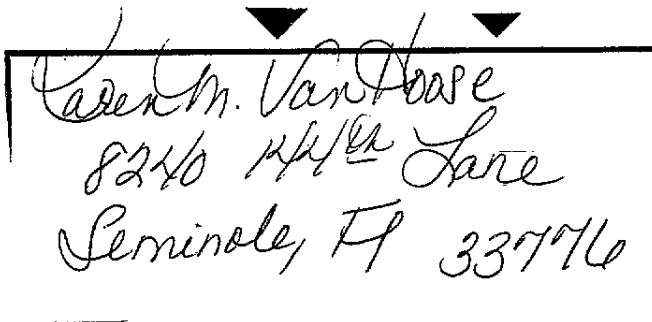 Karen M. VanHoose
8240 144th Lane
Seminole, Fl 33776